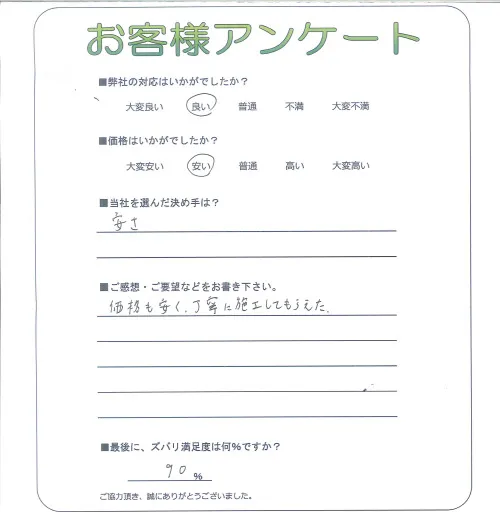 お客様アンケート
■弊社の対応はいかがでしたか？
大変良い 良い 普通 不満 大変不満
■価格はいかがでしたか？
大変安い 安い 普通 高い 大変高い
■当社を選んだ決め手は？
安さ
■ご感想・ご要望などをお書き下さい。
価格も安く、丁寧に施工してもらえた。
■最後に、ズバリ満足度は何%ですか？
90 %
ご協力頂き、誠にありがとうございました。